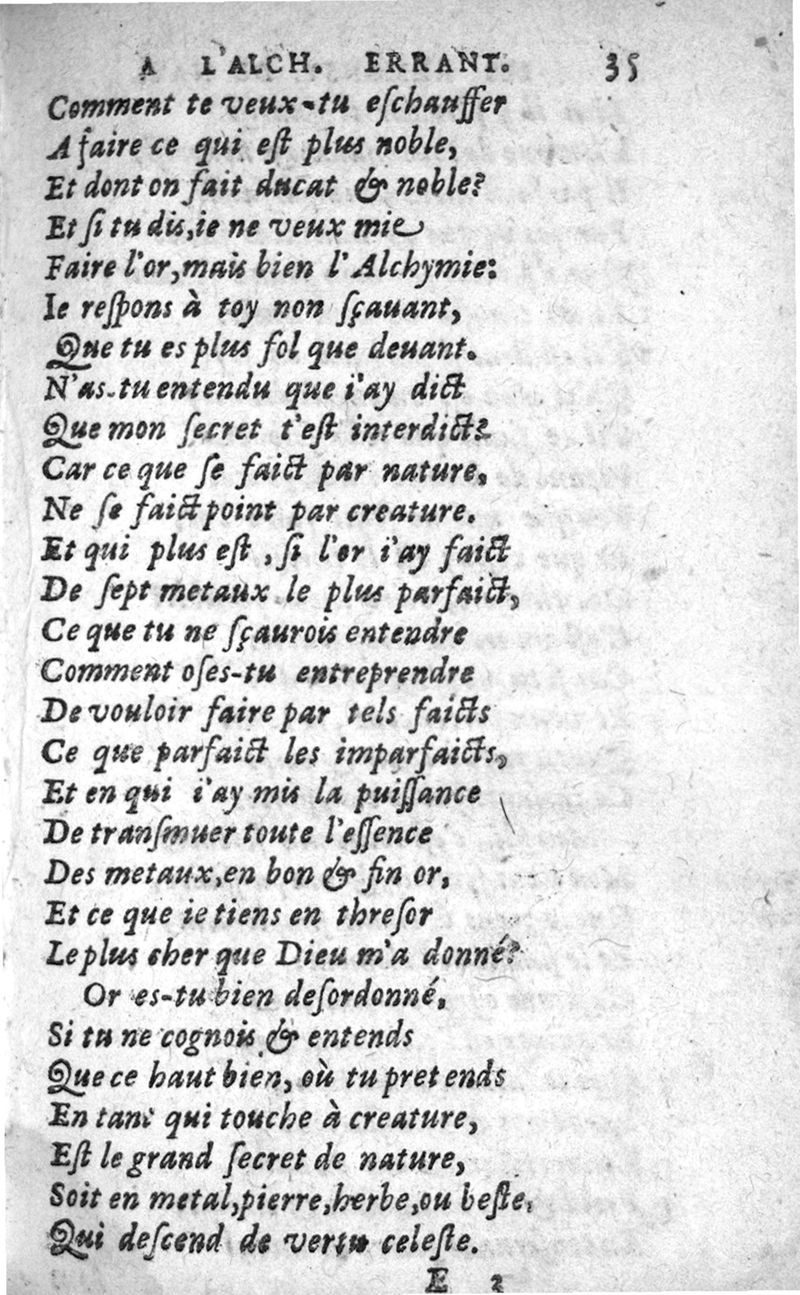 A L'ALCH. ERRANT. 35
Comment te veux-tu eſchauffer
A faire ce qui eſt plus noble,
Et dont on fait ducat & noble?
Et ſi tu dis, ie ne veux mie
Faire l'or, mais bien l'Alchymie:
Ie reſpons à toy non ſçauant,
Que tu es plus fol que deuant.
N'as-tu entendu que i'ay dict
Que mon ſecret t'eſt interdict?
Car ce que ſe faict par nature,
Ne ſe faict point par creature.
Et qui plus eſt, ſi l'or i'ay faict
De ſept metaux le plus parfaict,
Ce que tu ne ſçaurois entendre
Comment oſes-tu entreprendre
De vouloir faire par tels faicts
Ce que parfaict les imparfaicts,
Et en qui i'ay mis la puiſſance
De tranſmuer toute l'eſſence
Des metaux, en bon & fin or,
Et ce que ie tiens en threſor
Le plus cher que Dieu m'a donné?
Or es-tu bien deſordonné,
Si tu ne cognois & entends
Que ce haut bien, où tu pretends
En tant qui touche à creature,
Eſt le grand ſecret de nature,
Soit en metal, pierre, herbe, ou beſte,
Qui deſcend de vertu celeſte.
E 3